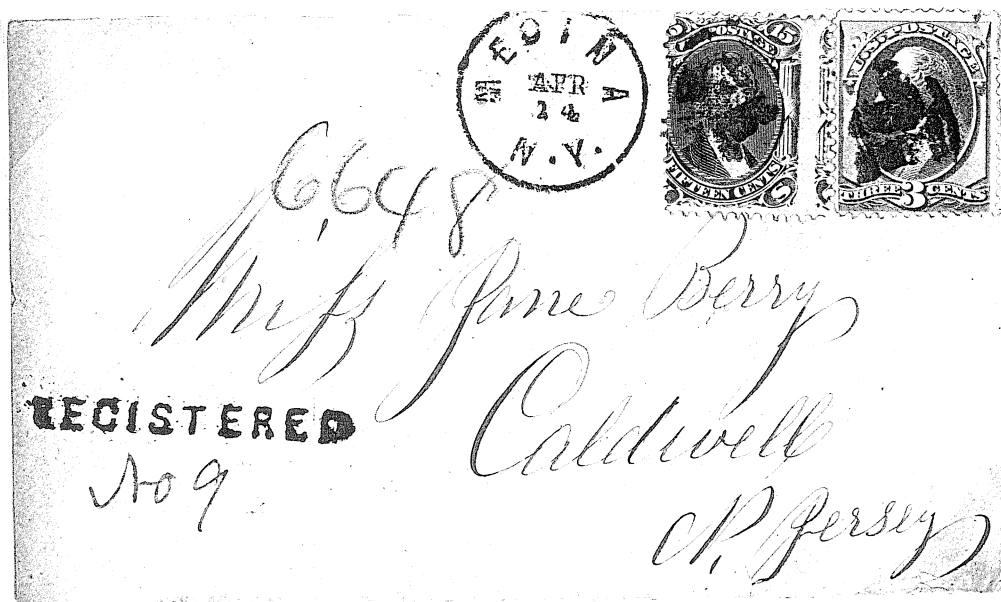 MEDINA
APR
24
N.Y.
15 POSTAGE
FIFTEEN CENTS
U.S. POSTAGE
THREE 3 CENTS
6648
Miſs Jane Berry
Caldwell
N. Jersey
REGISTERED
No 9